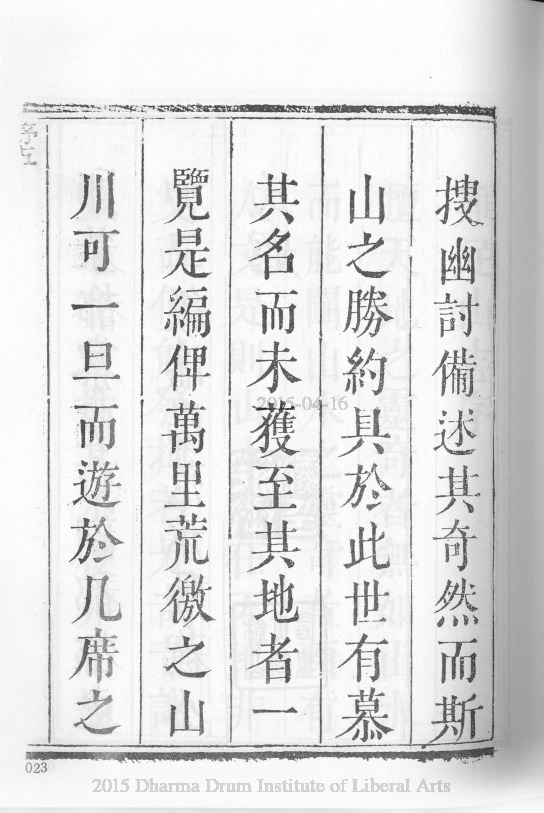 搜幽討備述其奇然而斯
山之勝約具於此世有慕
其名而未獲至其地者一
覽是編俾萬里荒徼之山
川可一旦而遊於几席之
序五
023
2015-04-16
2015 Dharma Drum Institute of Liberal Arts